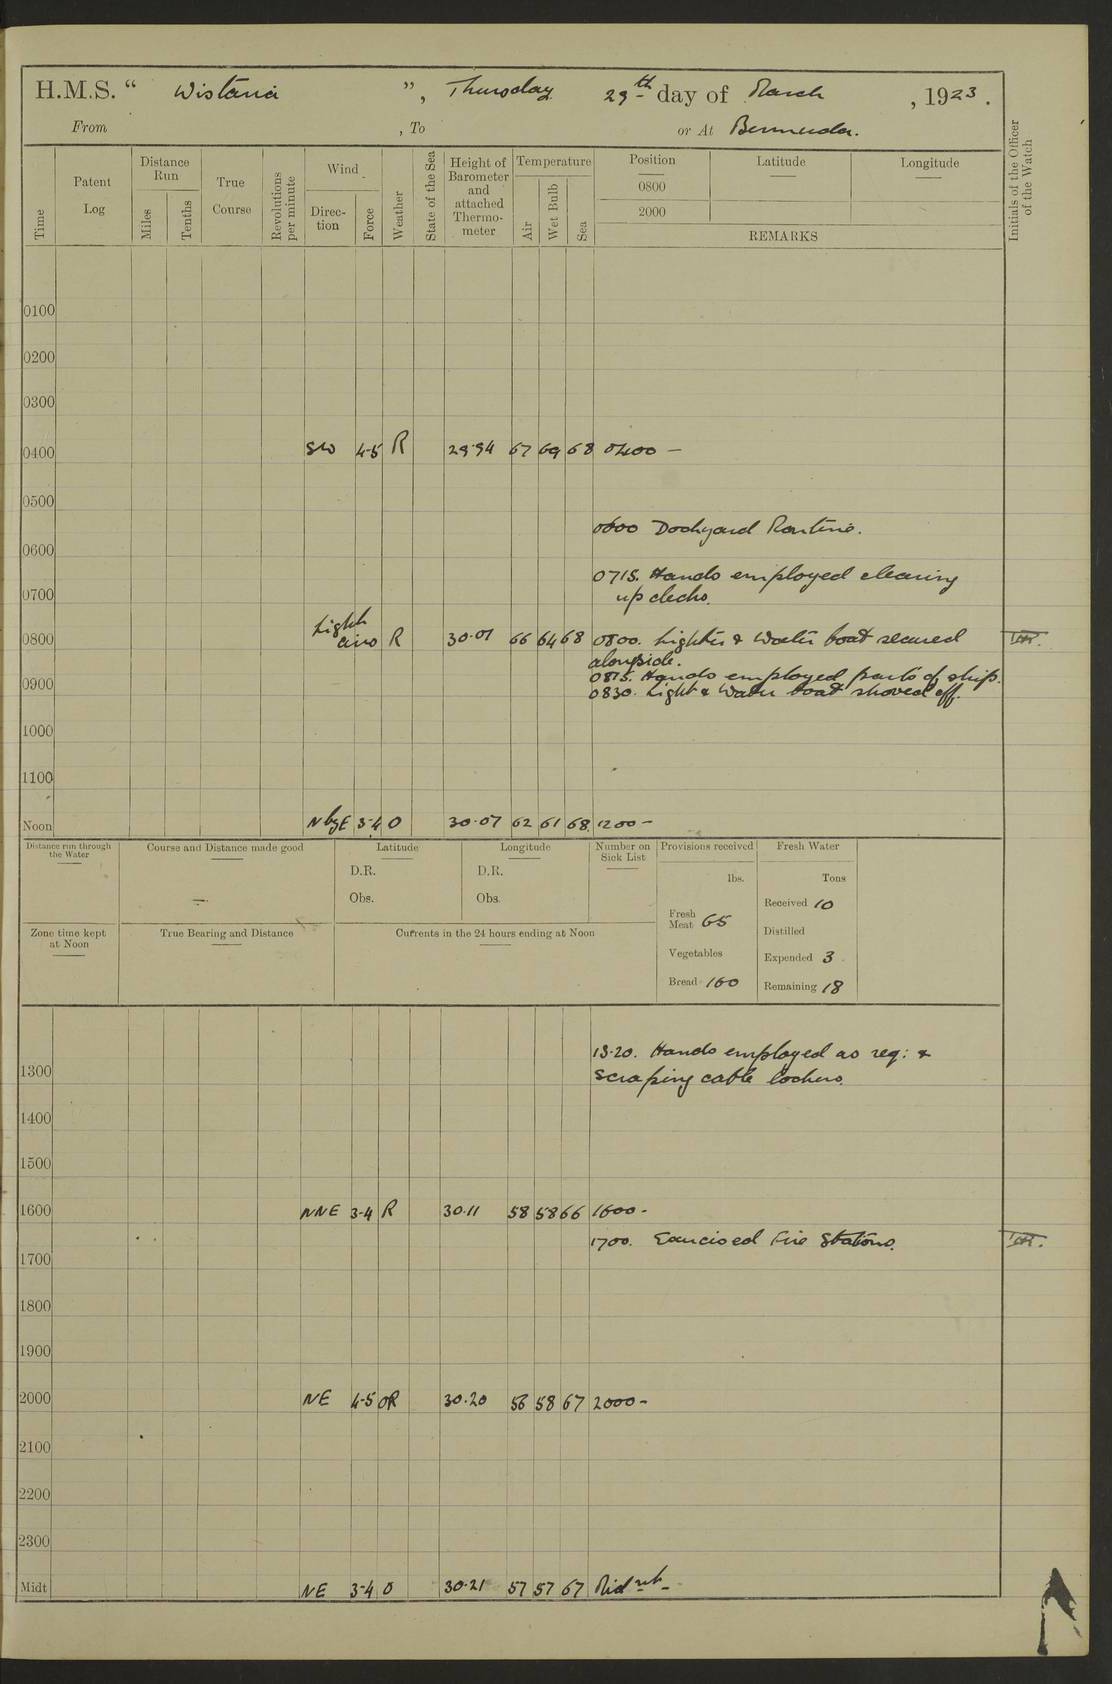 H.M.S. " Wistaria ", Thursday 29th day of March, 1923.
From , To or At Bermuda.
Time
Patent Log
Distance Run
Miles
Tenths
True Course
Revolutions per minute
Wind
Direction
Force
Weather
State of the Sea
Height of Barometer and attached Thermometer
Temperature
Air
Wet Bulb
Sea
Position Latitude Longitude
0800
2000
REMARKS
Initials of the Officer of the Watch
0100
0200
0300
0400 SW 4-5 R 29.94 67 69 68 0400 —
0500
0600 Dockyard Routine.
0600
0715. Hands employed cleaning
0700 up decks.
0800 Light airs R 30.01 66 64 68 0800. Lighter & Water boat secured
alongside.
0815. Hands employed parts of ship.
0900
0830. Light & Water boat shoved off.
1000
1100
Noon N by E 3-4 O 30.07 62 61 68 1200 —
Distance run through the Water
Course and Distance made good
Latitude
D.R.
Obs.
Longitude
D.R.
Obs.
Number on Sick List
Provisions received
lbs.
Fresh Meat 65
Vegetables
Bread 160
Fresh Water
Tons
Received 10
Distilled
Expended 3
Remaining 18
Zone time kept at Noon
True Bearing and Distance
Currents in the 24 hours ending at Noon
13.20. Hands employed as req: &
1300 scraping cable lockers.
1400
1500
1600 NNE 3-4 R 30.11 58 58 66 1600 -
1700. Exercised Fire Stations.
1700
1800
1900
2000 NE 4-5 OR 30.20 56 58 67 2000 -
2100
2200
2300
Midt NE 3-4 O 30.21 57 57 67 Midnt -